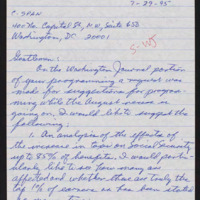 7-29-95
C-SPAN
400 No. Capitol St, N.W, Suite 652
Washington, DC 20001
S-WJ
Gentlemen:
On the Washington Journal portion
of your programming a request was
made for suggestions for program-
ming while the August recess is
going on. I would like to suggest the
following:
1. An analysis of the effects of
the increase in tax on Social Security
up to 85% of benefits. I would part-
like to see how many are
affected and whether these are truly the
top 1% of earners as has been stated